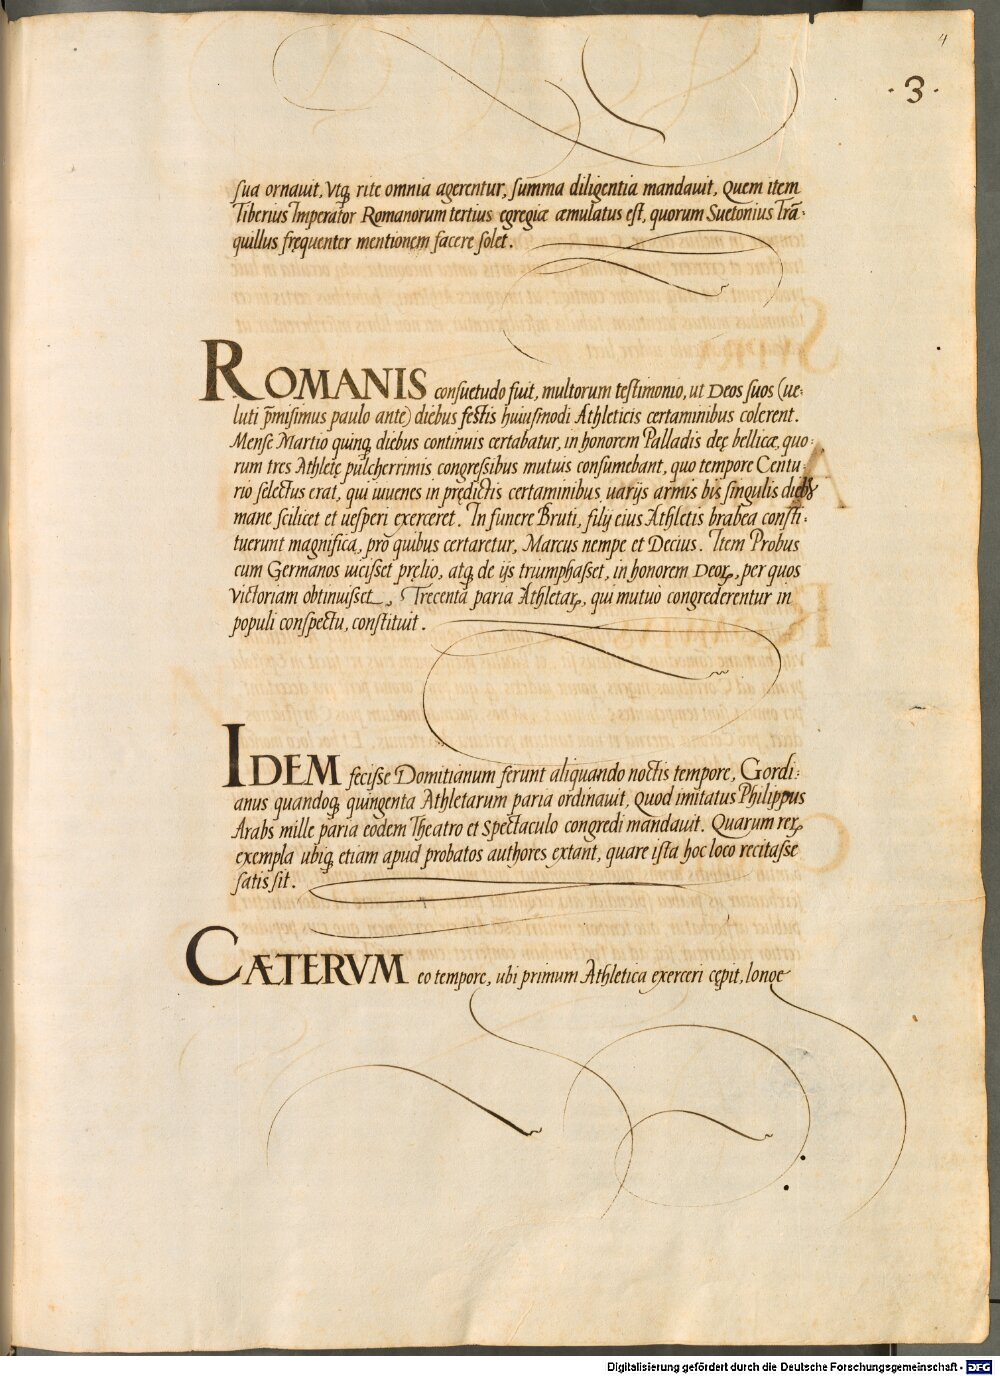 4
· 3 ·
sua ornauit, Vtq, rite omnia agerentur, summa diligentia mandauit, Quem item
Tiberius Imperator Romanorum tertius egregiæ æmulatus est, quorum Suetonius Trā-
quillus fręquenter mentionem facere solet.
ROMANIS consuetudo fuit, multorum testimonio, ut Deos suos (ue-
luti p̄misimus paulo ante) diebus festis huiusmodi Athleticis certaminibus colerent.
Mense Martio quinq, diebus continuis certabatur, in honorem Palladis deę bellicæ, quo-
rum tres Athletę pulcherrimis congressibus mutuis consumebant, quo tempore Centu-
rio selectus erat, qui iuuenes in prędictis certaminibus uarijs armis bis singulis dieb9
mane scilicet et uesperi exerceret. In funere Bruti, filij eius Athletis brabea consti-
tuerunt magnifica, pro quibus certaretur, Marcus nempe et Decius. Item Probus
cum Germanos uicisset pręlio, atq, de ijs triumphasset, in honorem Deoꝝ, per quos
Victoriam obtinuisset, Trecenta paria Athletaꝝ, qui mutuo congrederentur in
populi conspectu, constituit.
IDEM fecisse Domitianum ferunt aliquando noctis tempore, Gordi-
anus quandoq, quingenta Athletarum paria ordinauit, Quod imitatus Philippus
Arabs mille paria eodem Theatro et Spectaculo congredi mandauit. Quarum reꝝ
exempla ubiq, etiam apud probatos authores extant, quare ista hoc loco recitasse
satis sit.
CÆTERVM eo tempore, ubi primum Athletica exerceri cępit, longe
Digitalisierung gefördert durch die Deutsche Forschungsgemeinschaft - DFG